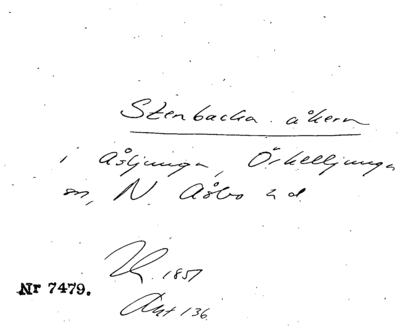 Stenbacka åkern
i Åsljunga, Örkelljunga
sn, N. Åsbo hd
1857
Nr 7479.
Akt 136